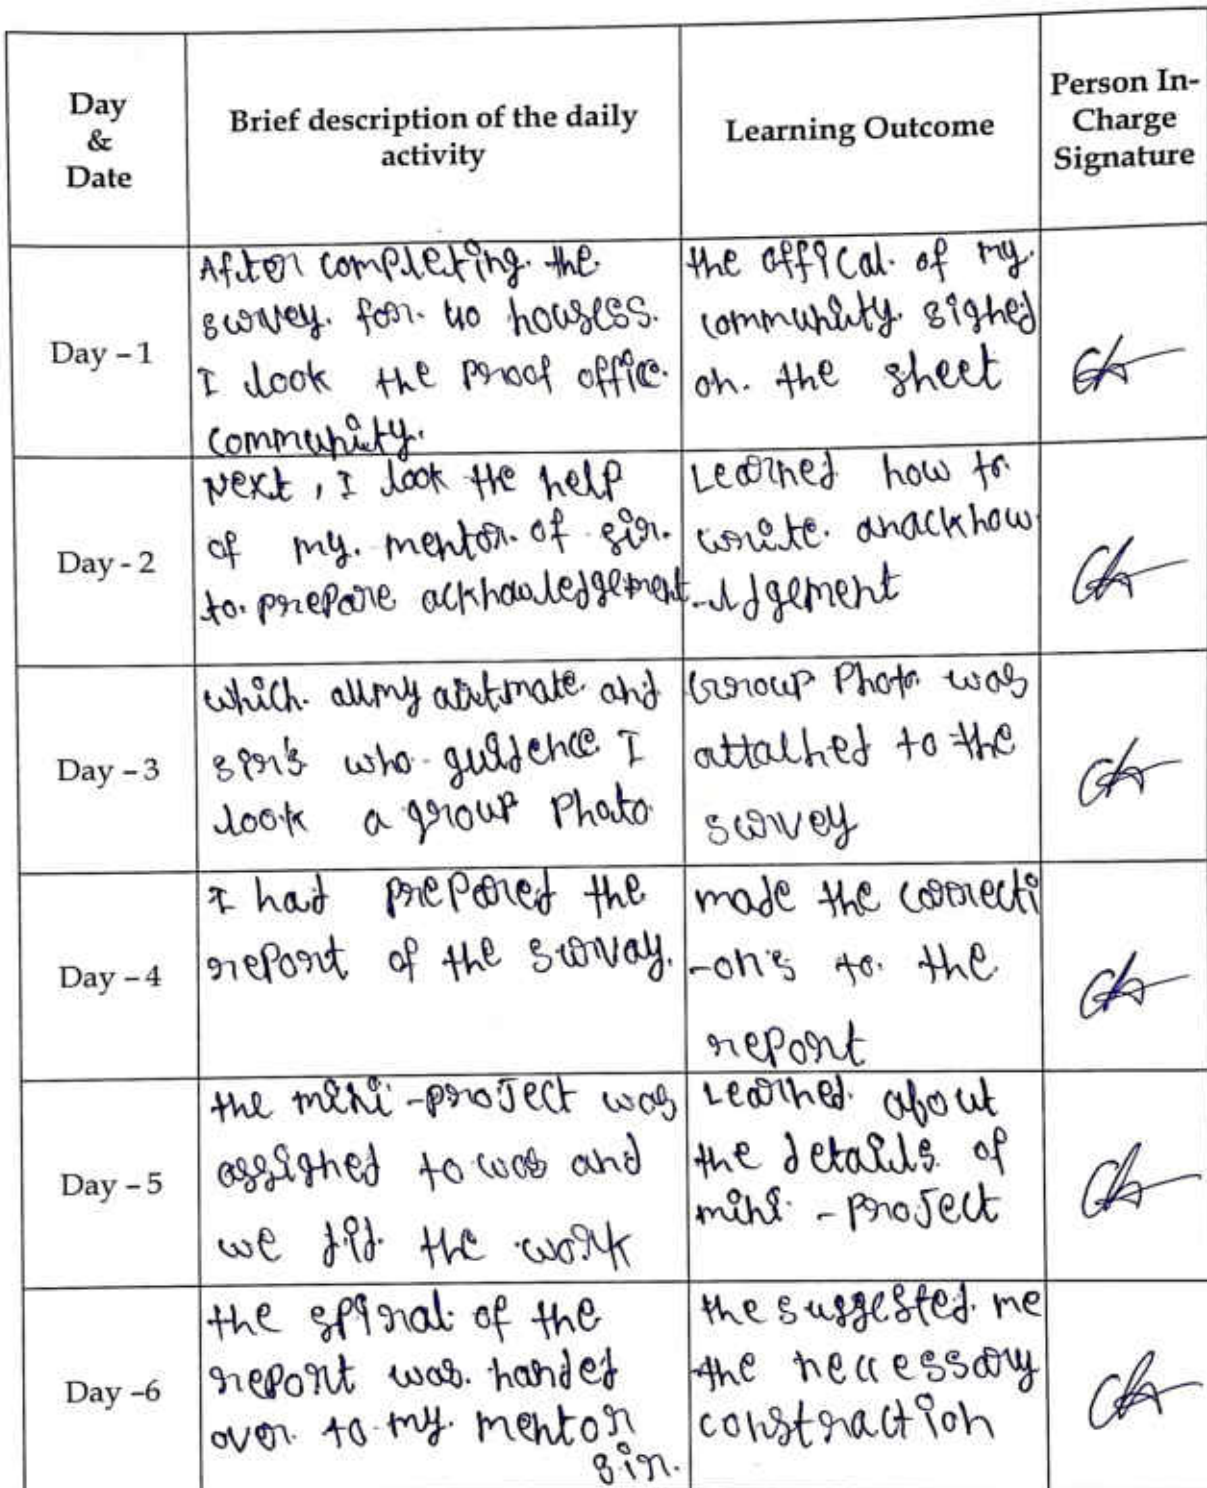 Day
&
Date
Brief description of the daily
activity
Learning Outcome
Person In-
Charge
Signature
Day – 1
After completing. the.
survey. for. 40 housess.
I look the proof office.
community.
the offical. of my.
community. signed
on. the sheet
Day - 2
Next, I look the help
of my. mentor. of sir.
to. prepare acknowledgement
Learned how to
write. anacknow
-ldgement
Day – 3
which. allmy and
sir's who guidence I
look a group Photo
Group Photo was
attached to the
survey
Day – 4
I had prepared the
report of the survay.
made the correcti
-on's to. the
report
Day – 5
the mini-project was
assigned to was and
we did. the work
Learned. about
the details. of
mini - project
Day –6
the spiral. of the
report was. handed
over. to my. mentor
sir.
the suggested. me
the neccessary
constraction